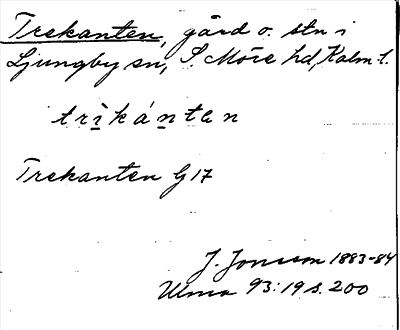 Trekanten, gård o. stn i
Ljungby sn, S. Möre hd, Kalm. l.
trìkánten
Trekanten G 17
J. Jonsson 1883-84
Ulma 93:19 s. 200